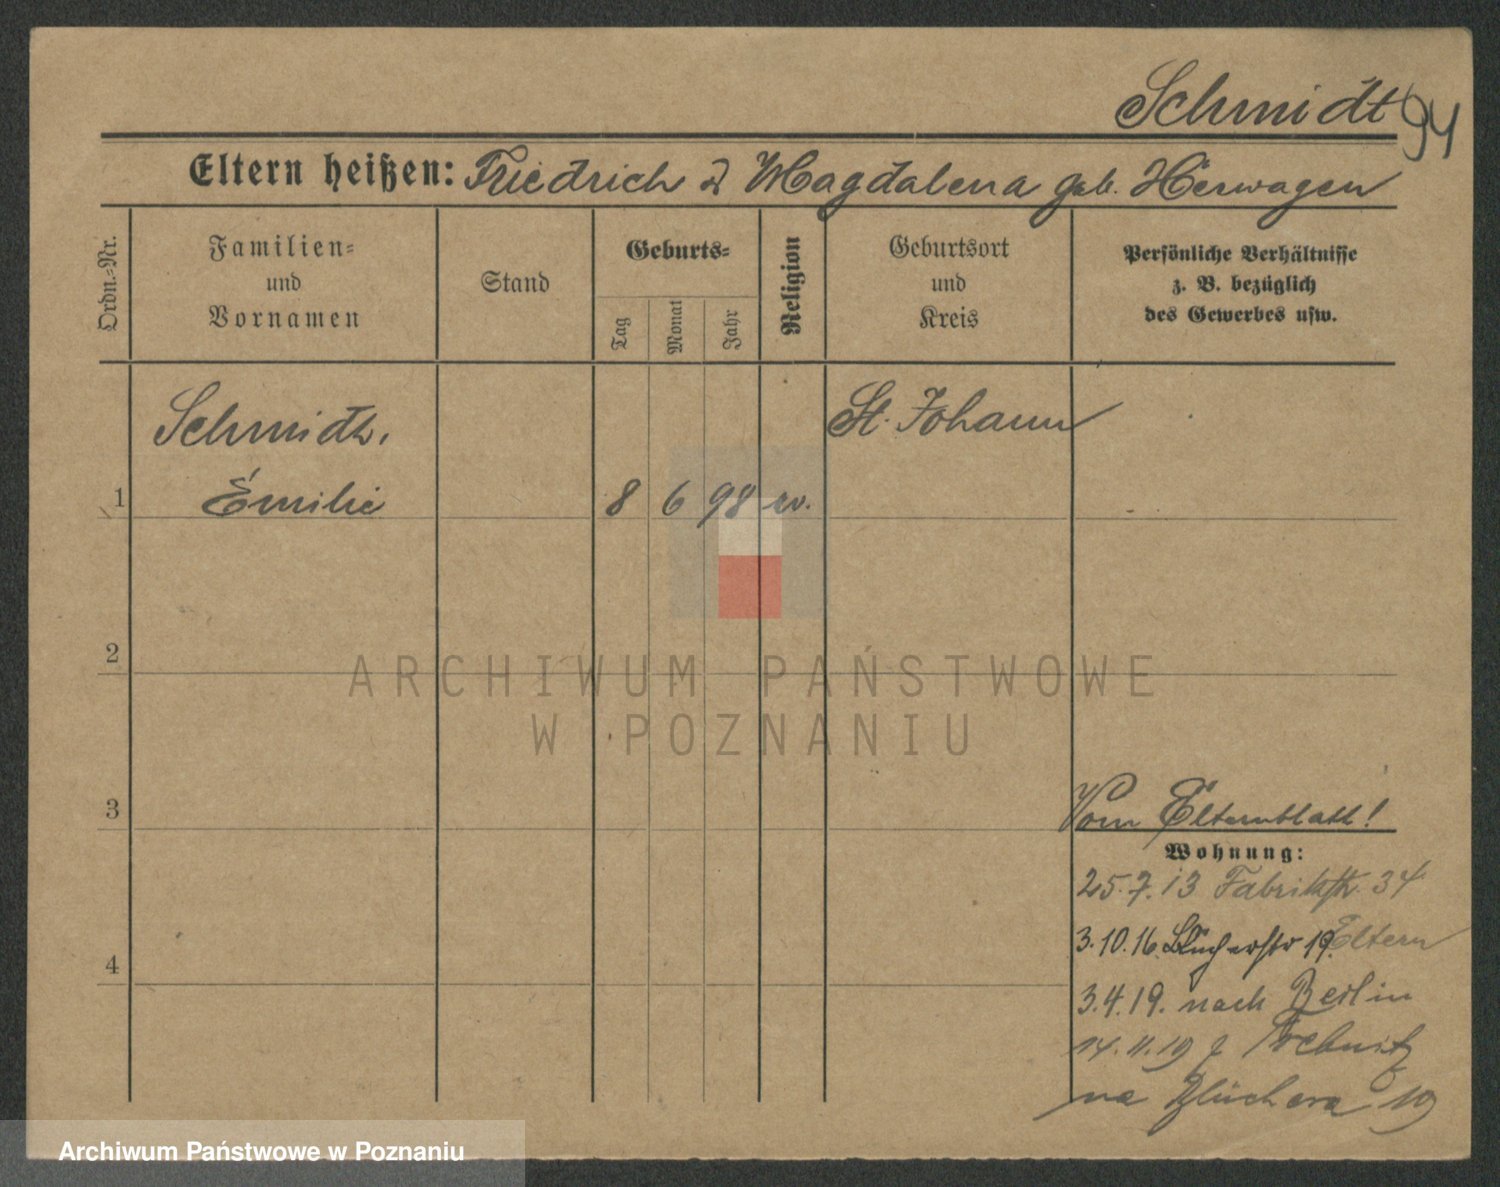 Schmidt 94
Eltern heißen: Friedrich & Magdalena geb. Herwagen
Ordn.-Nr.
Familien-
und
Vornamen
Stand
Geburts-
Tag
Monat
Jahr
Religion
Geburtsort
und
Kreis
Persönliche Verhältnisse
z. B. bezüglich
des Gewerbes usw.
Schmidt,
St. Johann
1 Emilie 8 6 98 ev.
2
ARCHIWUM PAŃSTWOWE
W POZNANIU
3
Vom Elternblatt!
Wohnung:
25.7.13 Fabrikstr. 34
3.10.16. Blücherstr 19. Eltern
4
3.4.19. nach Berlin
14.11.19 z
na Blüchera 19
Archiwum Państwowe w Poznaniu